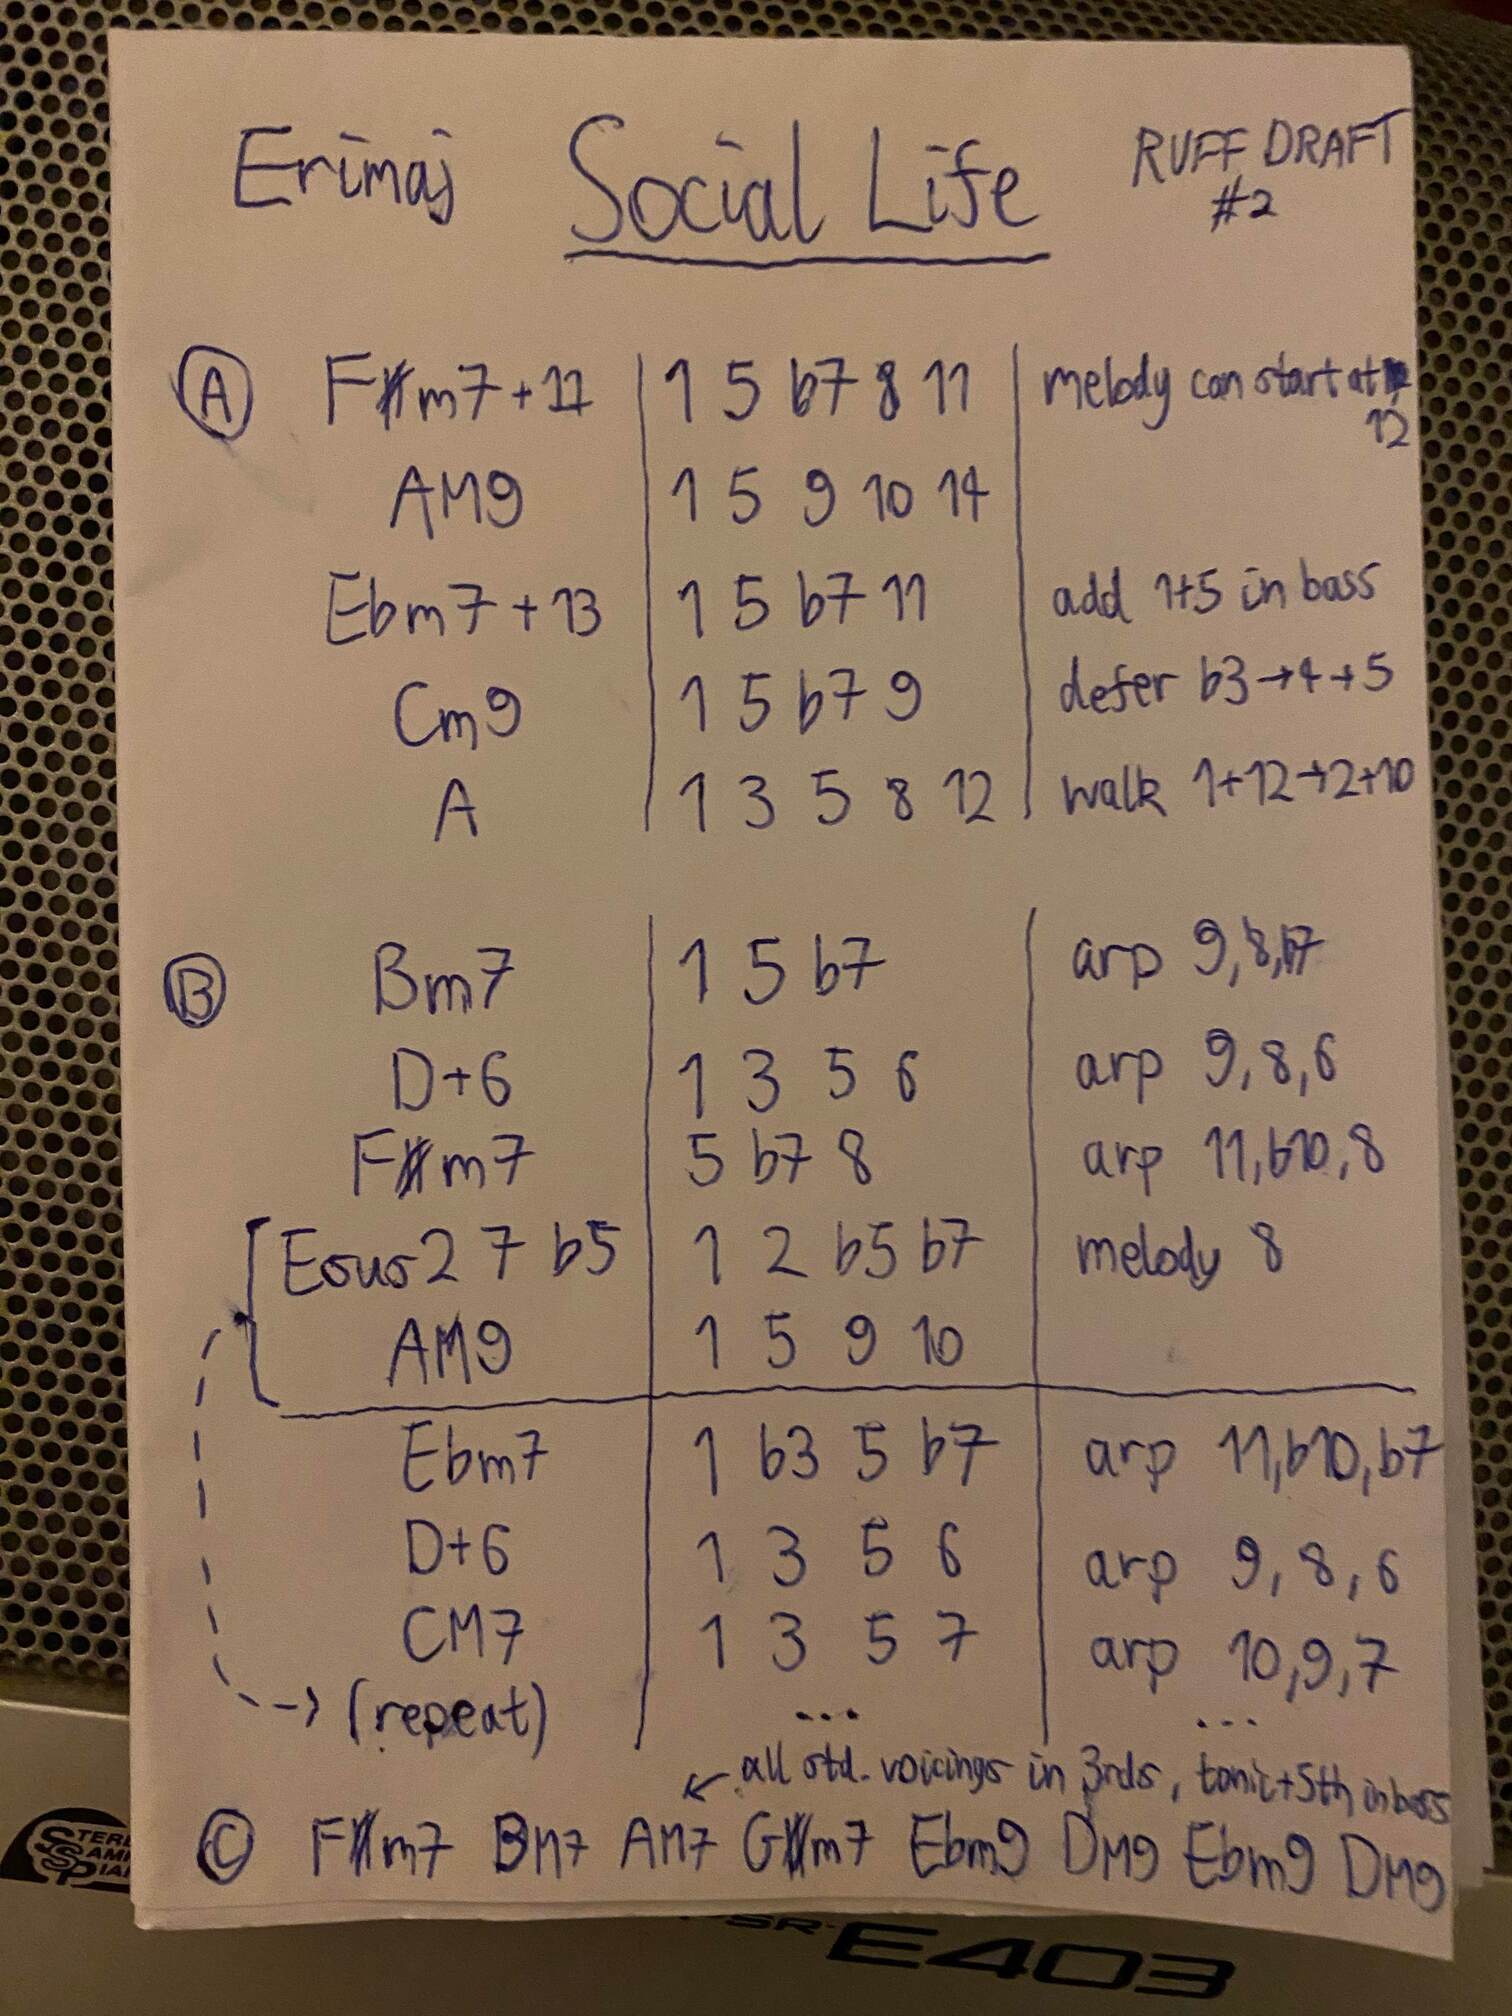 Erimaj Social Life RUFF DRAFT
#2
A F#m7+11 1 5 b7 8 11 melody can start at
12
AM9 1 5 9 10 14
Ebm7+13 1 5 b7 11 add 1+5 in bass
Cm9 1 5 b7 9 defer b3→4→5
A 1 3 5 8 12 walk 1+12→2+10
B Bm7 1 5 b7 arp 9,8,b7
D+6 1 3 5 6 arp 9,8,6
F#m7 5 b7 8 arp 11,b10,8
Esus2 7 b5 1 2 b5 b7 melody 8
AM9 1 5 9 10
Ebm7 1 b3 5 b7 arp 11,b10,b7
D+6 1 3 5 6 arp 9,8,6
CM7 1 3 5 7 arp 10,9,7
→ (repeat) ... ...
← all std. voicings in 3rds, tonic+5th in bass
C F#m7 BM7 AM7 G#m7 Ebm9 DM9 Ebm9 DM9
PSR-E403